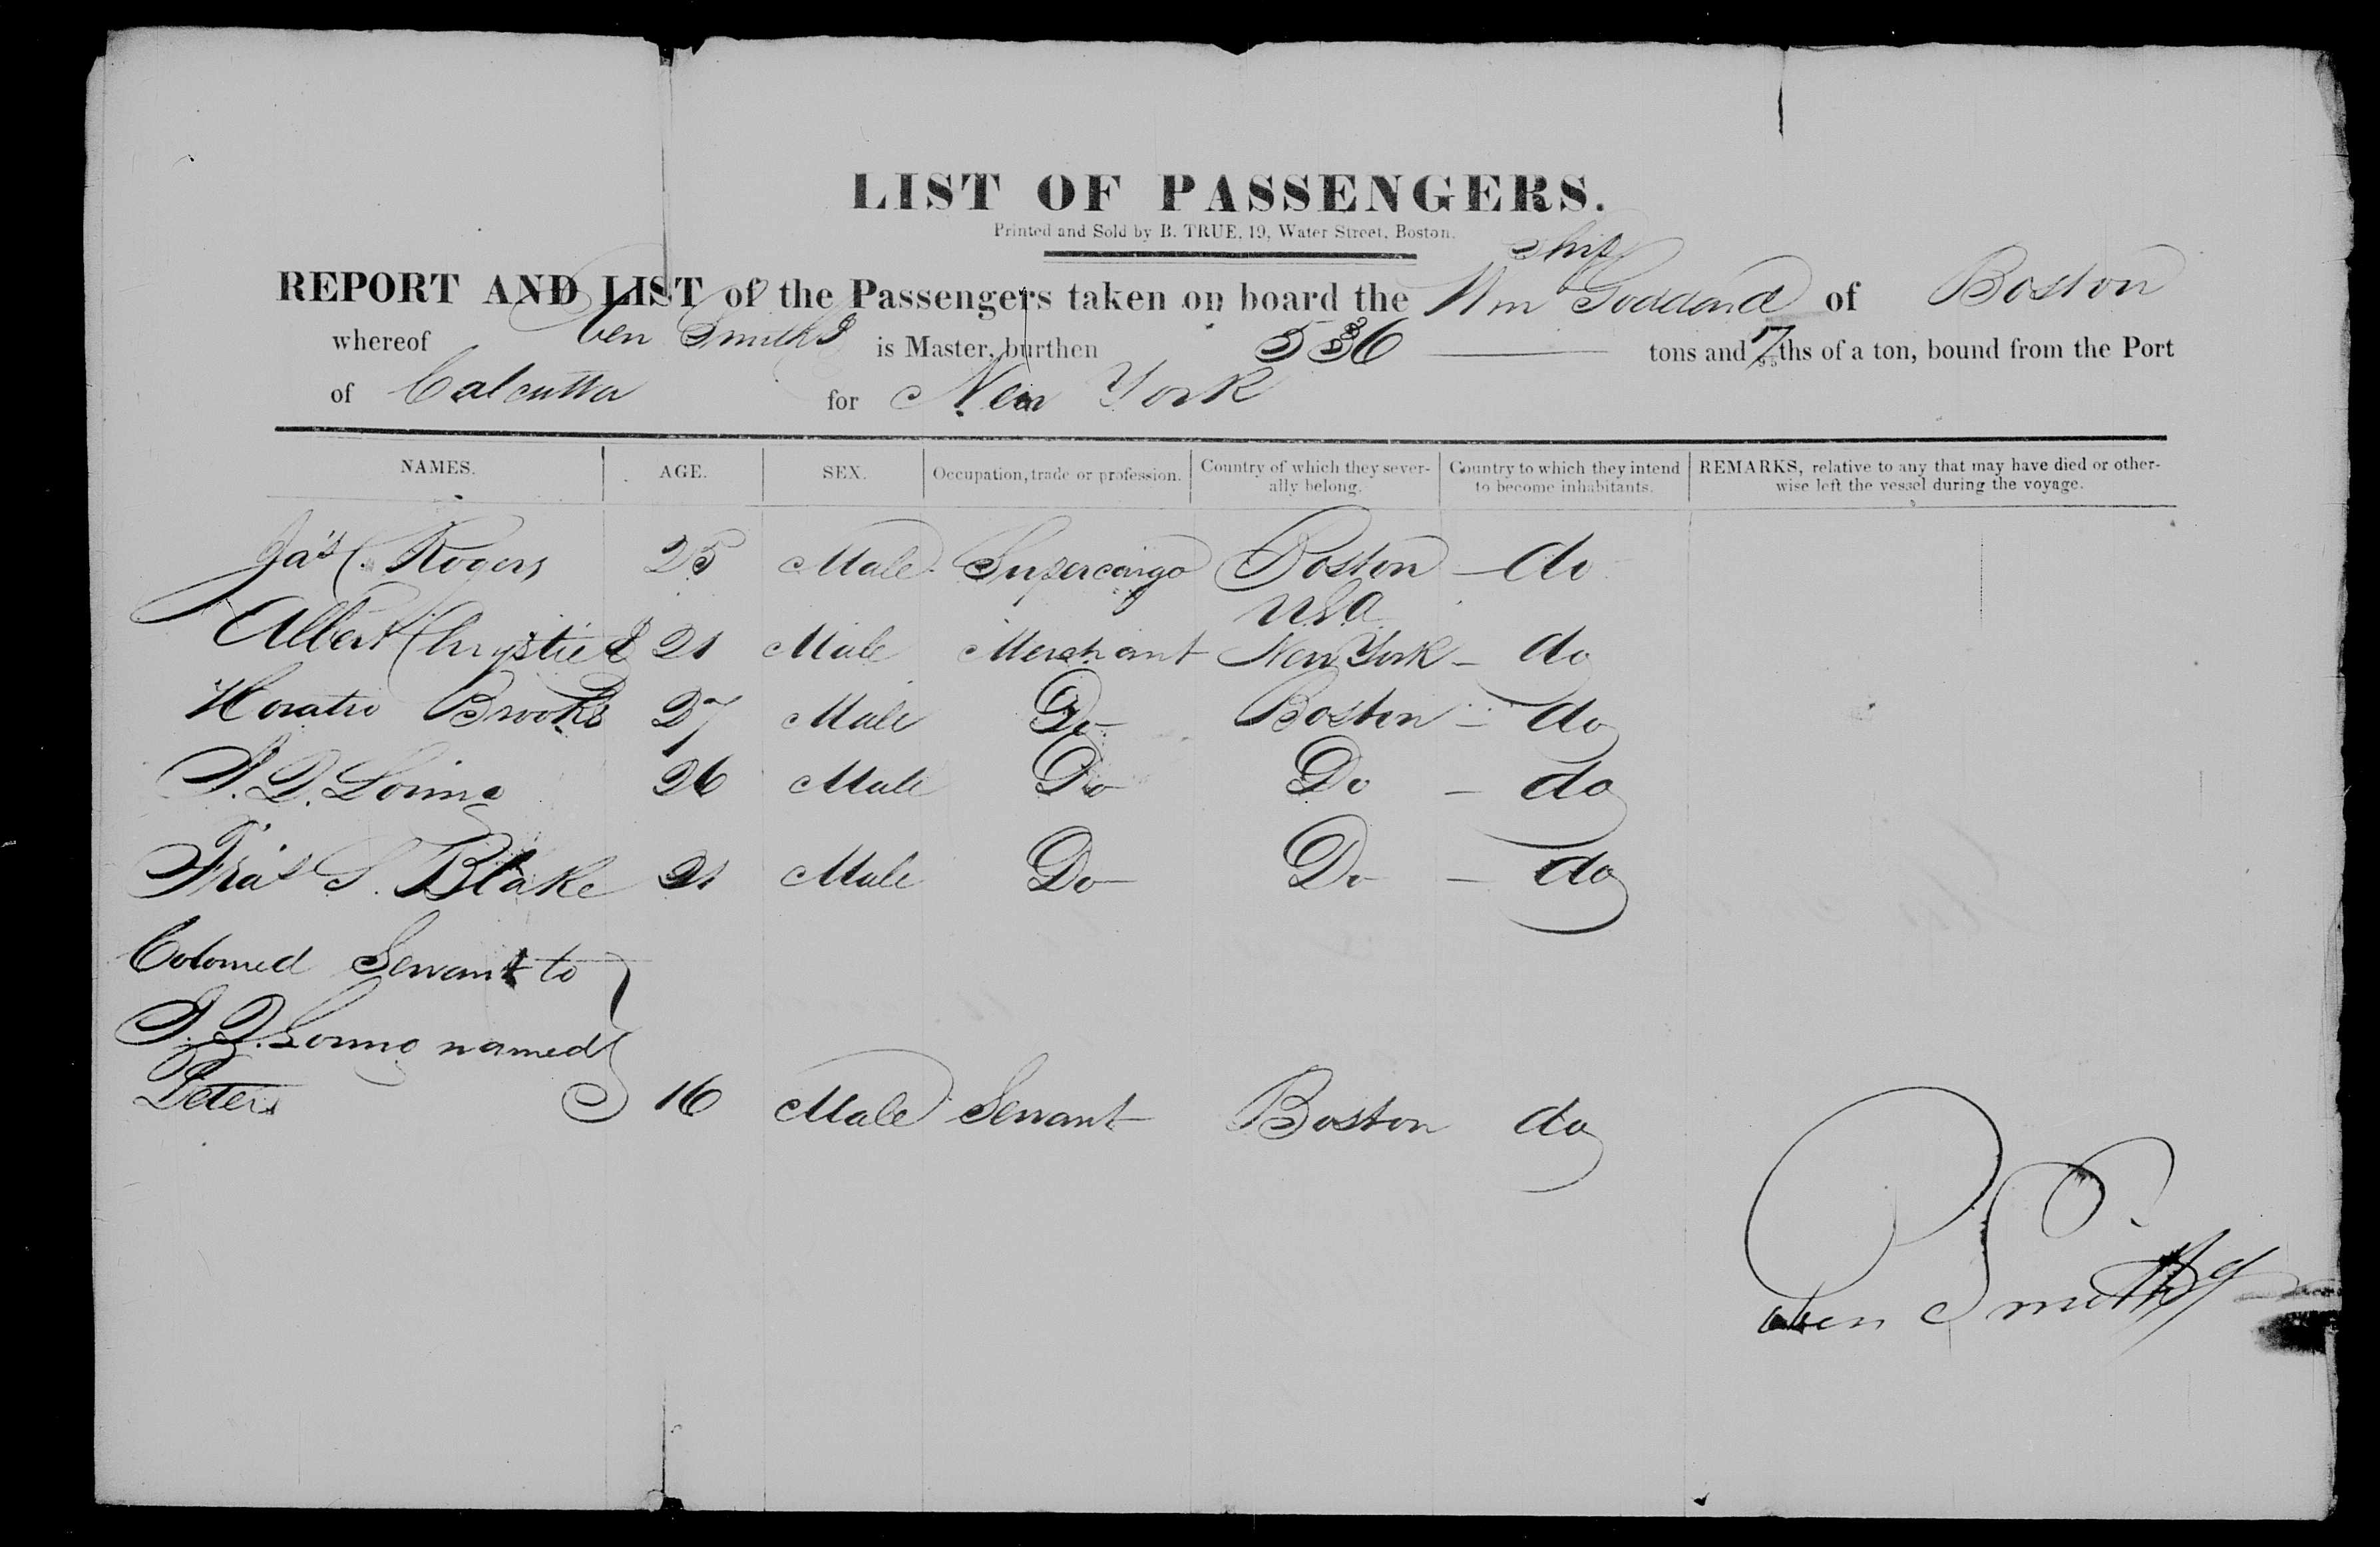 LIST OF PASSENGERS.
Printed and Sold by B. TRUE, 19, Water Street, Boston.
Ship
REPORT AND LIST of the Passengers taken on board the Wm Goddard of Boston
whereof Eben Smith is Master, burthen 536 tons and 7/95ths of a ton, bound from the Port
of Calcutta for New York
NAMES. AGE. SEX. Occupation, trade or profession. Country of which they severally belong. Country to which they intend to become inhabitants. REMARKS, relative to any that may have died or otherwise left the vessel during the voyage.
Jas C. Rogers 25 Male Supercargo Boston — do
USA
Albert Christie 21 Male Merchant New York — do
Horatio Brooks 27 Male Do Boston — do
D. Loring 26 Male Do Do — do
Fras S. Blake 21 Male Do Do — do
Coloured Servant to
D. Loring named
Peter 16 Male Servant Boston do
Eben Smith